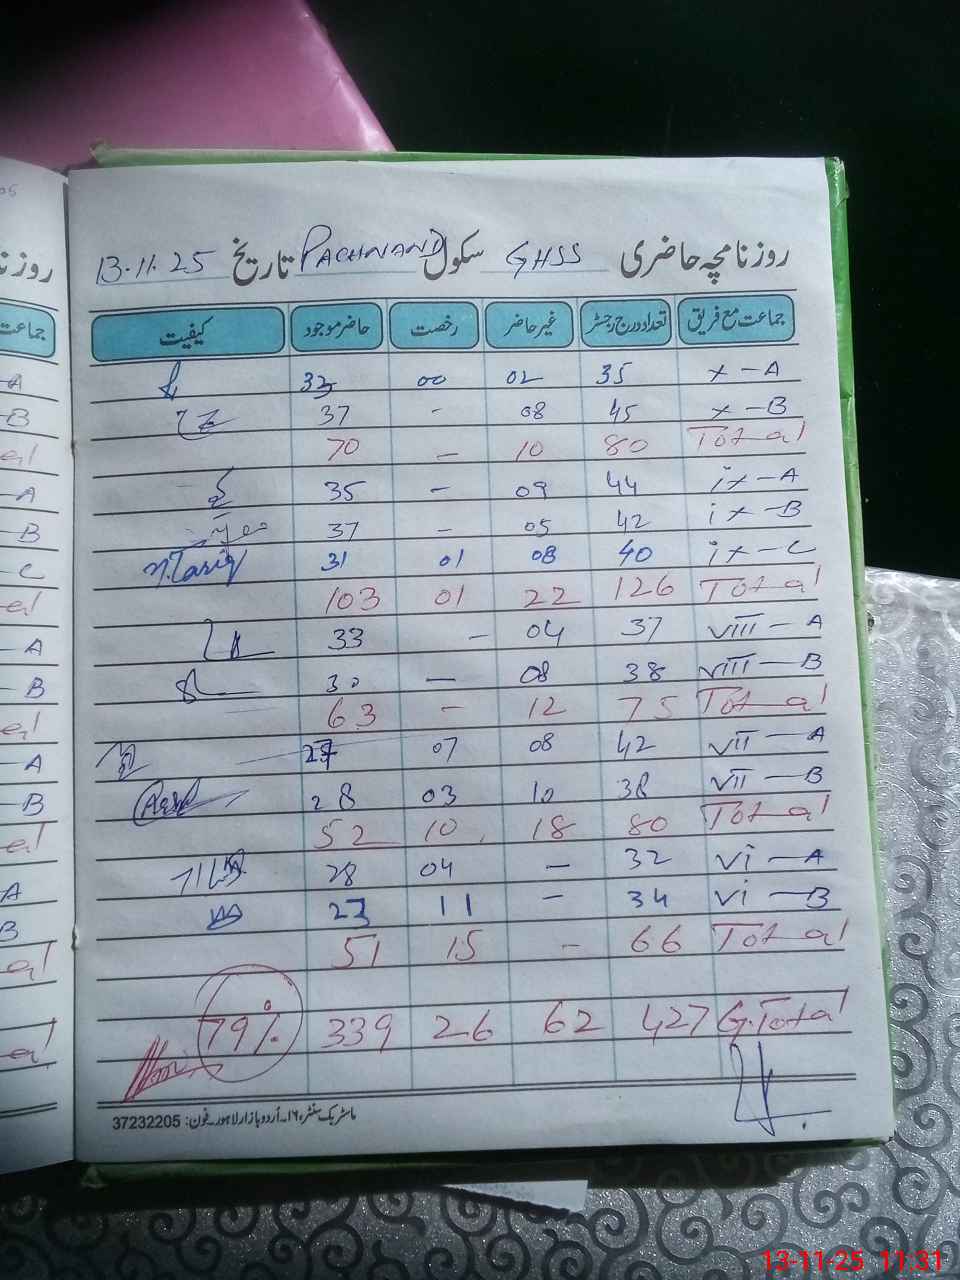 روزنامچہ حاضری GHSS سکول PACHNAND تاریخ 13.11.25
جماعت مع فریق تعداد درج رجسٹر غیر حاضر رخصت حاضر موجود کیفیت
X-A 35 02 00 33
X-B 45 08 - 37
Total 80 10 - 70
iX-A 44 09 - 35
iX-B 42 05 - 37
iX-C 40 08 01 31 M.Tariq
Total 126 22 01 103
VIII-A 37 04 - 33
VIII-B 38 08 - 30
Total 75 12 - 63
VII-A 42 08 07
VII-B 38 10 03 28
Total 80 18 10 52
Vi-A 32 - 04 28
Vi-B 34 - 11 23
Total 66 - 15 51
G.Total 427 62 26 339 79%
ماسٹر بک سنٹر، ۱۶۔اُردو بازار لاہور۔فون: 37232205
13-11-25 11:31